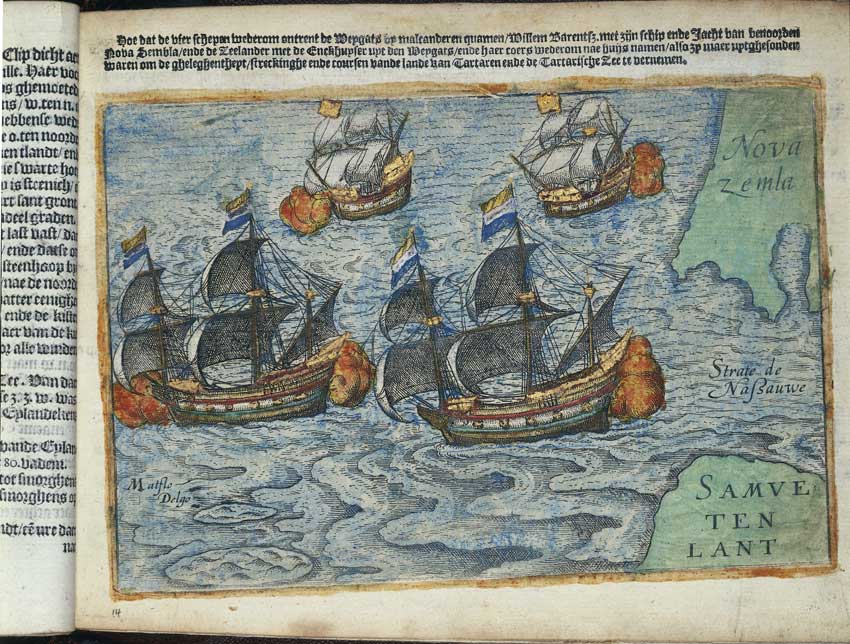 Clip dicht aen
ille. Haer voo
os ghemoeted
ns/ w.ten n.
hebbense wed
e o.ten noorde
en tlandt/ en
ie swarte hoe
o is steenich/
rt sant gront
ndeel graden.
t last vast/ da
/ ende datse o
steenhoop by
nae de noord
atter eenigha
ende de kuste
aer van de ku
or alle winden
Zee. Van dae
se z.z.w. was
Eylandeken
vande Eylan
80. vadem.
tot smorghens
smorghens op
ndt/ eñ ure dan
na
Hoe dat de vier schepen wederom ontrent de Weygats by malcanderen quamen/ Willem Barentsz. met zijn schip ende Jacht van benoorden
Nova Sembla/ ende de Zeelander met de Enckhuyser uyt den Weygats/ ende haer coers wederom nae huys namen/ also zy maer uytghesonden
waren om de gheleghentheyt/ streckinghe ende coursen vande lande van Tartaren ende de Tartarische Zee te vernemen.
Nova
zemla
Strate de
Naßauwe
Matflo
Delgo
SAMVE
TEN
LANT
14